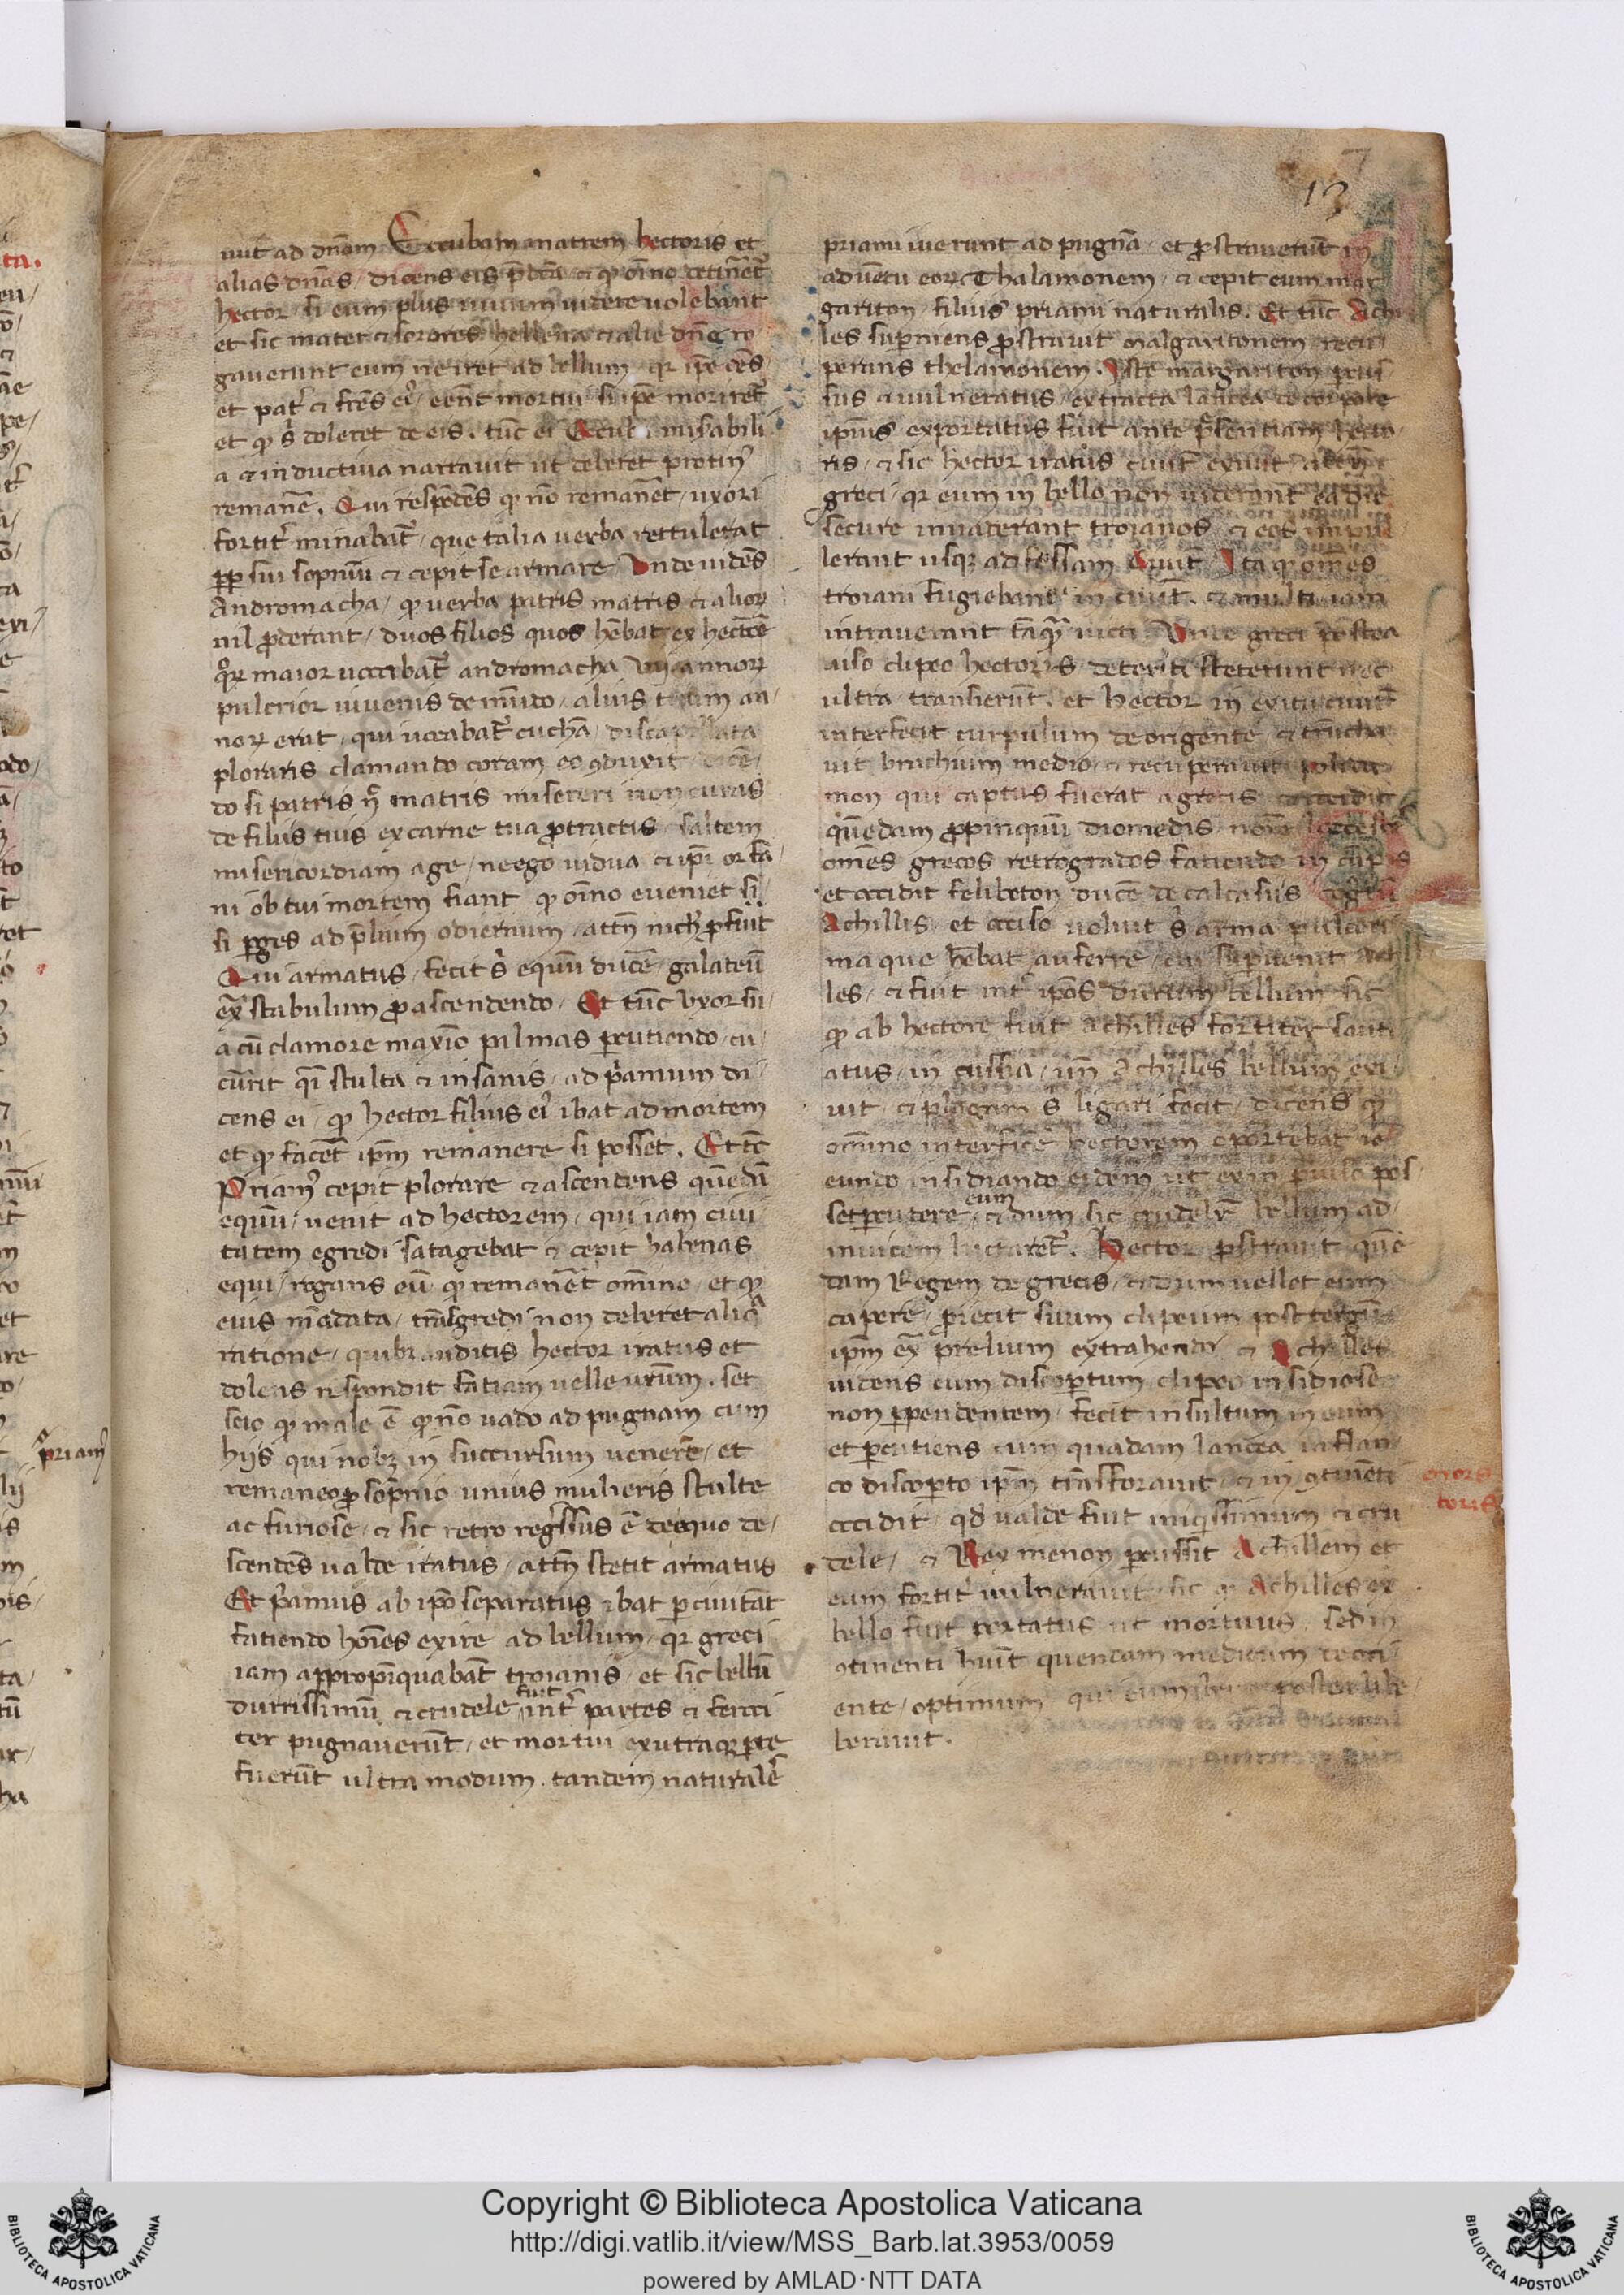 13
uit ad dnam Eccubam matrem hectoris et
alias dnas / dicens eis p̄dcā ⁊ ꝙ oīno detin̄et᷑
hector / si eum plus uiuum uidere uolebant
et sic mater ⁊ sorores hellena ⁊ alie dn̄e ro
gauerunt eum ne iret ad bellum qr ip̄e
et pat̓ ⁊ frēs eī / eēnt mortui si ip̄e moriret᷑
et ꝙ s̓ doleret de eis. tūc ei misabili
a ⁊ inductiua narrauit ut deberet protin᷒
remanē. Qui respōdēs ꝙ nō remanēt / uxori
fortit̓ minabat᷑ / que talia uerba rettulerat
ꝓp̄ sui sopniū ⁊ cepit se armare Vnde uidēs
Andromacha / ꝙ uerba patris matris ⁊ alioꝝ
nil ꝓderant / duos filios quos hēbat ex hectōe
qͦꝝ maior uocabat᷑ andromacha annoꝝ
pulcrior iuuenis de mūdo / alius an /
noꝝ erat / qui uocabat᷑ cuchā / discapillata
plorans clamando coram eo ꝯduxit dicē /
do si patris n̄ matris misereri non curas
de filiis tuis ex carne tua ꝓtractis / saltem
misericordiam age / ne ego uidua ⁊ ip̄i orfa /
ni ob tui mortem fiant ꝙ oīno eueniet si
si ꝑges ad p̄lium odiernum / attn̄ nich̓ ꝓfuit
Qui armatus / fecit s̓ equū ducē / galateū
ex̄ stabulum ꝓ ascendendo. Et tūc vxor su /
a cū clamore maxīo palmas ꝑcutiendo / cu /
currit q̄i stulta ⁊ insanis / ad p̓amum di
cens ei / ꝙ hector filius eī ibat ad mortem
et ꝙ facēt ip̄m remanere si posset. Et tc̄
Priam᷒ cepit plorare ⁊ ascendens quēdā
equū / uenit ad hectorem / qui iam ciui
tatem egredi satagebat ⁊ cepit habenas
equi / rogans eū ꝙ remanēt omīno / et ꝙ
eius mādata / trāsgredi non deberet aliqᵃ
ratione / quibꝫ auditis hector iratus et
dolens respondit fatiam uelle urūm. set
scio ꝙ male ē ꝙ nō uado ad pugnam cum
hijs qui nobꝫ in succursum uenere / et
remaneo ꝓ sopnio unius mulieris stulte
ac furiose / ⁊ sic retro regr̄ssus ē de equo de /
scendēs ualde iratus / attn̄ stetit armatus
Et p̓amus ab ip̄o separatus ibat ꝑ ciuitāt
fatiendo hōies exire ad bellum / qr greci
iam appropīquabāt troianis / et sic bellū
durissimū ⁊ crudele fuit int̓ partes ⁊ feroci
ter pugnauerūt / et mortui ex utraqꝫ ꝑte
fuerūt ultra modum. tandem naturalē
priami iuerunt ad pugnā / et ꝓstrauerūt in
aduētu eoꝝ Thalamonem / ⁊ cepit eum mar
gariton / filius priami naturalis. Et tūc Achi
les suꝑueniens ꝓstrauit malgaritonem recu
perans thelamonem. Iste margariton ꝑcus
sus ⁊ uulneratus / extracta lancea de corpore
ip̄ius exportatus fuit ante p̄sentiam hecto
ris / ⁊ sic hector iratus exiuit
greci / qr eum in bello non uiderant ea die
secure inuaserant troianos / ⁊ eos impu
lerant usqꝫ ad fossam ciuit̄. Ita ꝙ omēs
troiani fugiebant in ciuit̄. ⁊ multi iam
intrauerant tāqᵃ uicti. Vnde greci postea
uiso clipeo hectoris / deteriti steterunt nec
ultra / transierūt. et hector in exitu ciuit̄
interfecit curpulum de origente / ⁊ trūcha
uit brachium medio / ⁊ recuperauit
mon qui captus fuerat a grecis
quēdam ꝓpinquū diomedis
omēs grecos retrogrados fatiendo in
et occidit felibeton ducē de calcasus
Achillis / et occiso uoluit s̓ arma pulcerri
ma que hēbat auferre / cui suꝑuenit Achi
les / ⁊ fuit int̓ ip̄os durum bellum sic
ꝙ ab hectore fuit achilles fortiter sauci
atus / in cussia / un̄ Achilles bellum exi
uit / ⁊ plagam s̓ ligari fecit / dicens ꝙ
omīno interficē hectorem oportebat
eundo insidiando eidem ut ex inꝓuiso pos
set ꝑcutere eum / ⁊ dum sic crudelr̄ bellum ad
inuicem luctaret᷑. Hector ꝓstrauit quē
dam Regem de grecis / ⁊ dum uellet eum
capere / ꝓiecit suum clipeum post tergū
ip̄m ex̄ prelium extrahendi ⁊ Achilles
uidens eum discoꝑtum clipeo insidiose
non ꝑpendentem / fecit insultum in eum
et ꝑcutiens cum quadam lancea in flan
co discoꝑto ip̄m trāsforauit / ⁊ in ꝯtinēti
occidit / qd̄ ualde fuit iniqͥssimum ⁊ cru
dele / ⁊ Rex menon ꝑcussit Achillem et
eum fortit̓ uulnerauit / sic ꝙ Achilles ex
bello fuit portatus ut mortuus. sed in
ꝯtinenti huīt quendam medicum de ori
ente / optimum / qui eum postea libe /
berauit.
priam᷒
mors
toris
Copyright © Biblioteca Apostolica Vaticana
http://digi.vatlib.it/view/MSS_Barb.lat.3953/0059
powered by AMLAD·NTT DATA
BIBLIOTECA APOSTOLICA VATICANA
BIBLIOTECA APOSTOLICA VATICANA